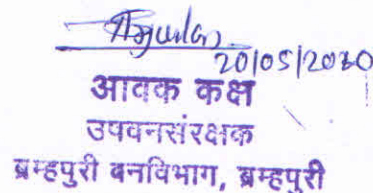 20/05/2020
आवक कक्ष
उपवनसंरक्षक
ब्रम्हपुरी वनविभाग, ब्रम्हपुरी